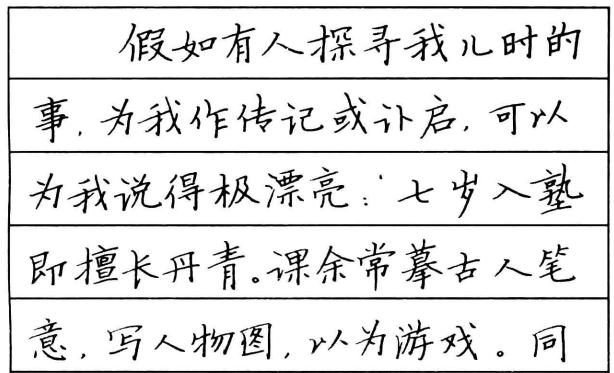 假如有人探寻我儿时的
事,为我作传记或讣启,可以
为我说得极漂亮:“七岁入塾
即擅长丹青。课余常摹古人笔
意,写人物图,以为游戏。同